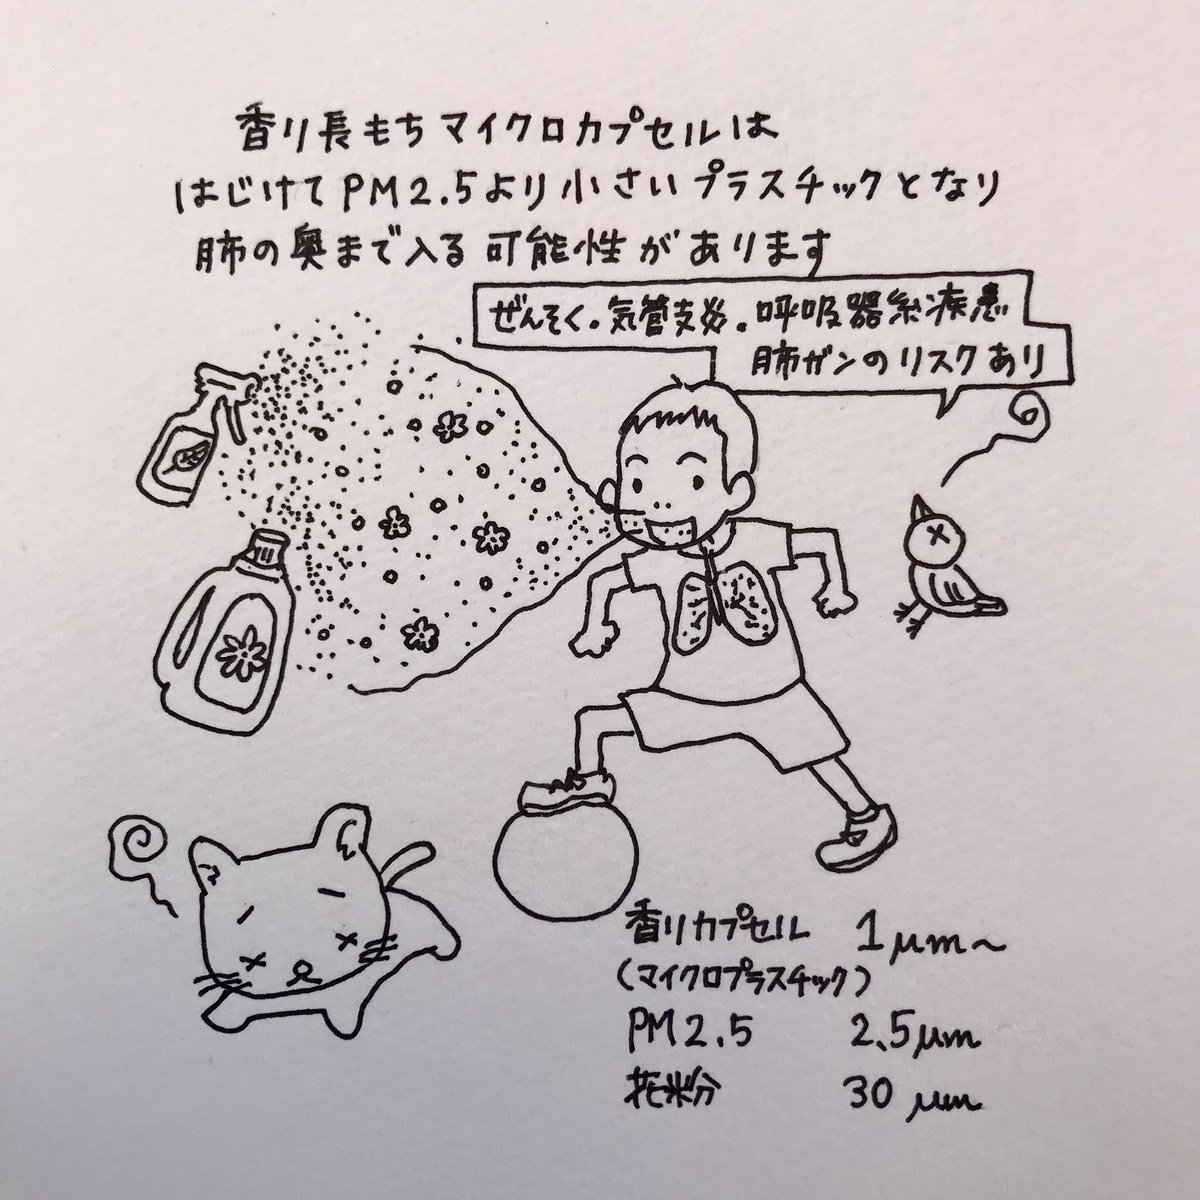 香り長もちマイクロカプセルは
はじけてPM2.5より小さいプラスチックとなり
肺の奥まで入る可能性があります
ぜんそく。気管支炎。呼吸器系疾患
肺ガンのリスクあり
香りカプセル 1μm～
(マイクロプラスチック)
PM2.5 2.5μm
花粉 30μm